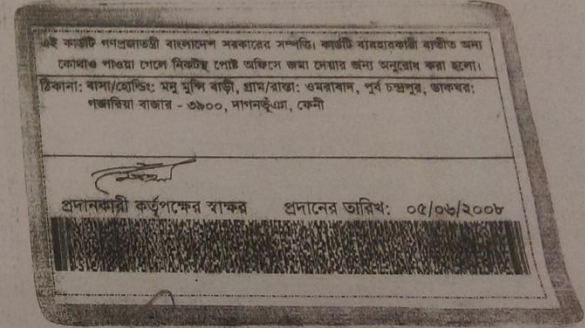 এই কার্ডটি গণপ্রজাতন্ত্রী বাংলাদেশ সরকারের সম্পত্তি। কার্ডটি ব্যবহারকারী ব্যতীত অন্য
কোথাও পাওয়া গেলে নিকটস্থ পোষ্ট অফিসে জমা দেয়ার জন্য অনুরোধ করা হলো।
ঠিকানা: বাসা/হোল্ডিং: মনু মুন্সি বাড়ী, গ্রাম/রাস্তা: ওমরাবাদ, পূর্ব চন্দ্রপুর, ডাকঘর:
গজারিয়া বাজার - ৩৯০০, দাগনভূঁঞা, ফেনী
প্রদানকারী কর্তৃপক্ষের স্বাক্ষর প্রদানের তারিখ: ০৫/০৬/২০০৮